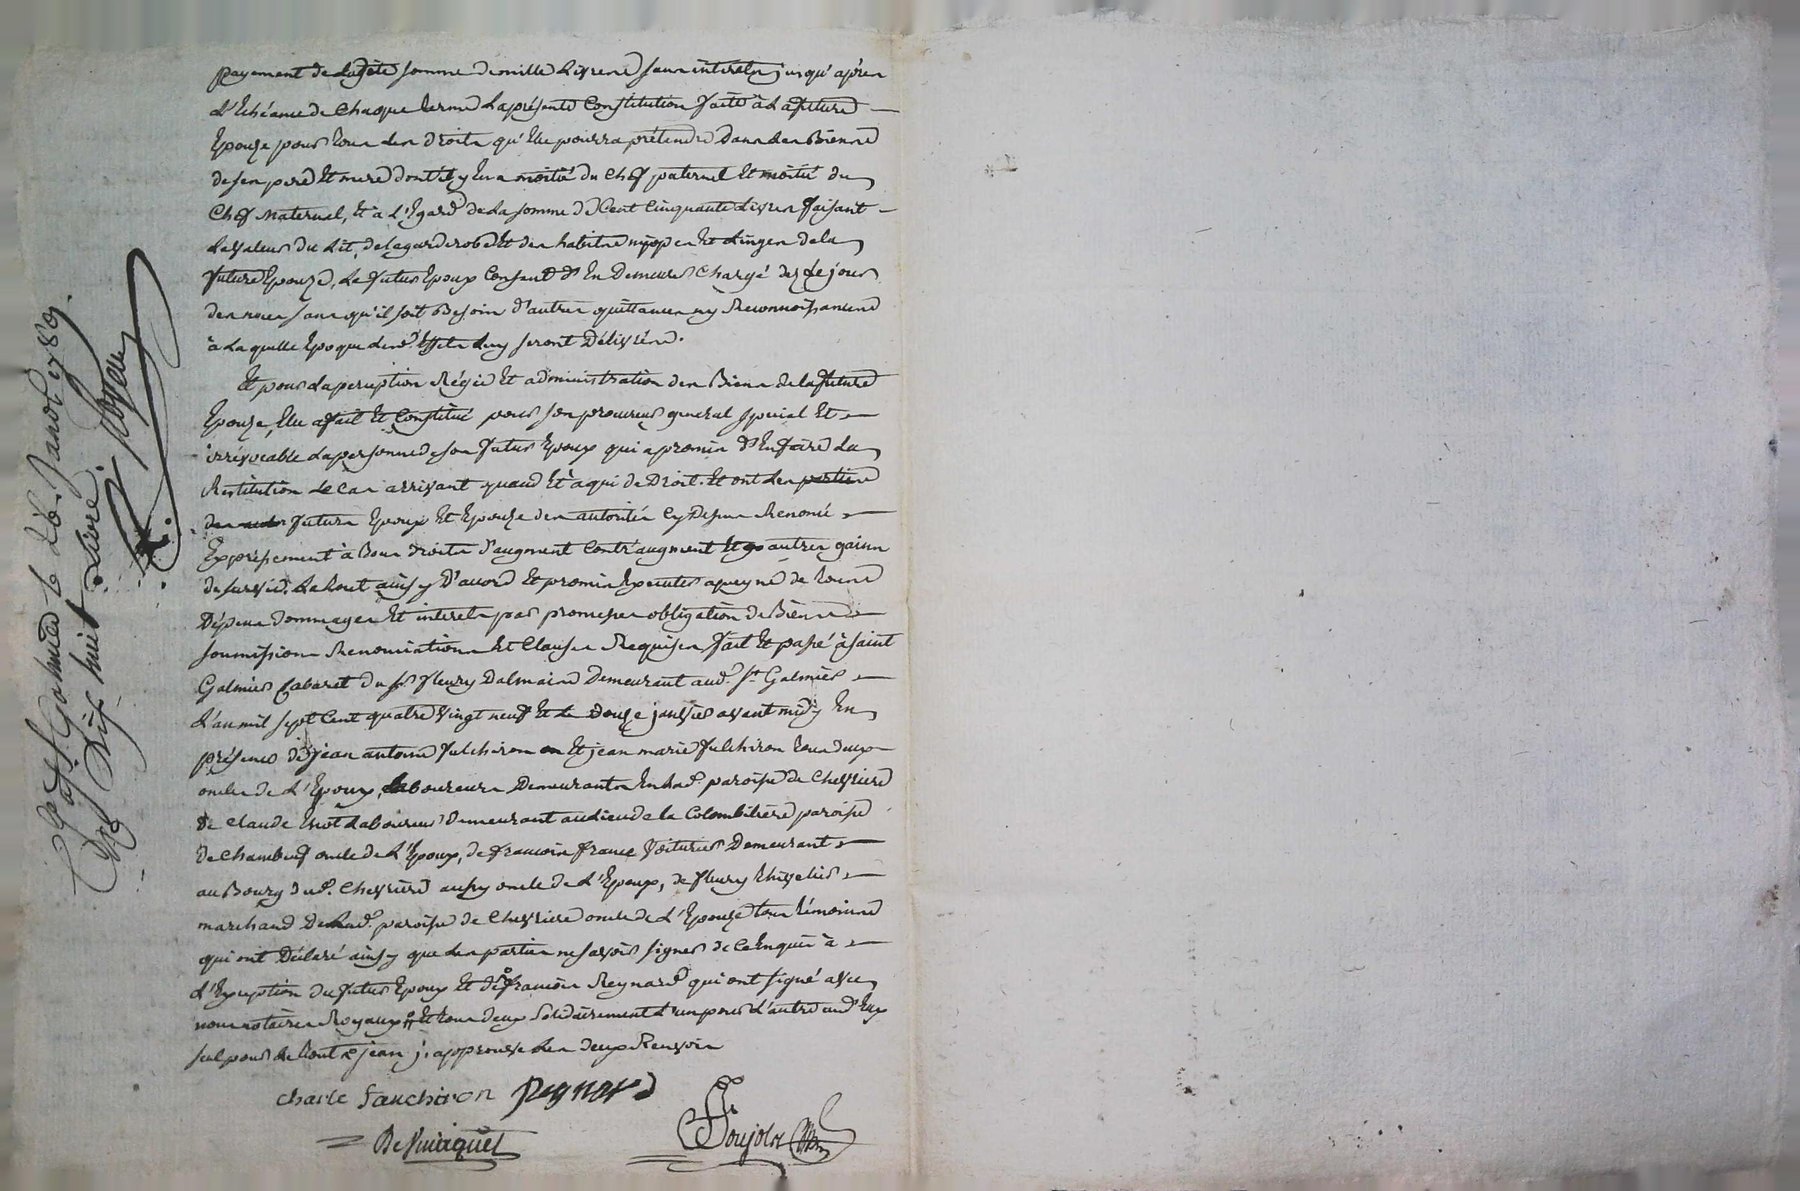 payement de ladite somme de mille Livres sans interets jusqu'aprés
L'Echéance de Chaque terme La présente Constitution faite à La future
Epouze pour tous les droits qu'Elle pourra prétendre Dans les Biens
de ses pere Et mere dont il y En a moitié du Chef paternel Et moitié du
Chef Maternel, Et à L'Egard de La somme de Cent Cinquante Livres faisant
La valeur du Lit, de La garderobe Et des habits nippes Et Linges de la
future Epouze, Le futur Epoux Consent d'En Demeurer Chargé dez Le jour
des noces sans qu'il soit Besoin d'autres quittances ny Reconnoissances
à La quelle Epoque Lesd. Effets Luy seront Délivrés.
Et pour La perception Régie Et administration des Biens de la future
Epouze, Elle a fait Et Constitué pour son procureur general special Et
irrévocable La personne de son futur Epoux qui a promis d'En faire La
Restitution Le Cas arrivant quand Et à qui de Droit. Et ont Les parties
futurs Epoux Et Epouze des autorités Cy Dessus Renoncé
Expressement à tous droits d'augment Contraugment Et autres gains
de survie. Le tout ainsy D'accord Et promis Executer a peyne de tous
Dépens dommages Et interets par promesses obligation de Biens
soumissions Renonciations Et Clauses Requises fait Et passé à Saint
Galmier Cabaret du sr fleury Dalmaird Demeurant aud. St. Galmier
L'an mil sept Cent quatre vingt neuf Et Le Douze janvier avant midy En
présence de jean antoine fulchiron Et jean marie fulchiron tous deux
oncles de L'Epoux, Laboureurs Demeurants En Lad. paroisse de Chevriere
de Claude Laboureur Demeurant au Lieu de la Colombiliere paroisse
de Chambeuf oncle de L'Epoux, de françois france Voiturier Demeurant
au Bourg dud. Chevriere aussy oncle de L'Epoux, de fleury Thivelier
marchand De Lad. paroisse de Chevriere oncle de L'Epouze tous témoins
qui ont Déclaré ainsy que Les parties ne savoir signer de Ce Enquis à
L'Exeption du futur Epoux Et de françois Reynard qui ont signé avec
nous notaires Royaux Et tous deux Solidairement L'un pour L'autre un d'Eux
seul pour Le tout jean j'approuve Les deux Renvois
Charle fauchiron Reynard
Desvuiaquet Poujolat
à St. Galmier Le 26. janvier 1789.
Dix huit Livres.